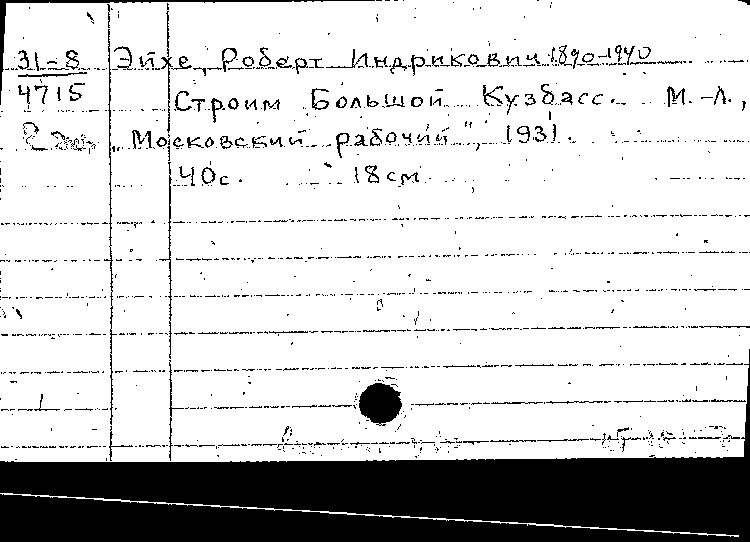 31-8 Эйхе, Роберт Индрикович 1890-1940
4715 Строим Большой Кузбасс. М.-Л.,
2 экз „Московский рабочий", 1931.
40с. 18см